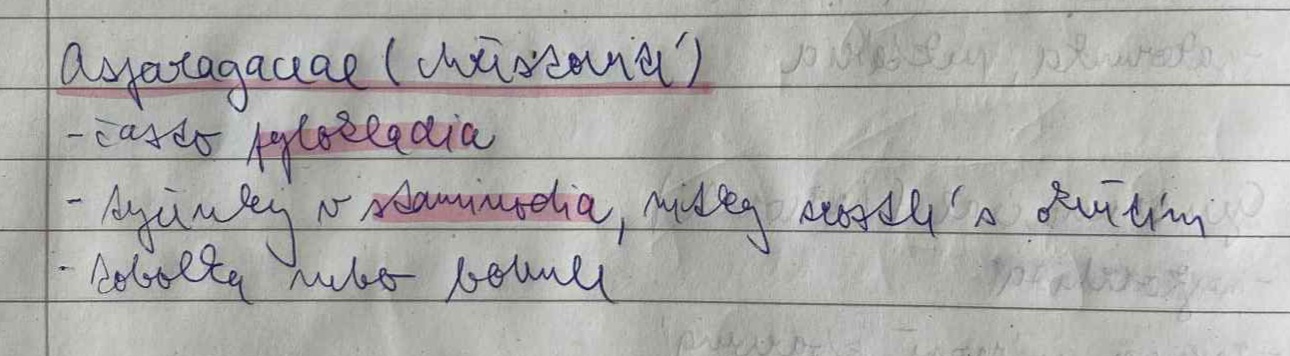 Asparagaceae (chřestovité)
- často fylokladia
- tyčinky v staminodia, nitky srostlé s okvětím
- tobolka nebo bobule